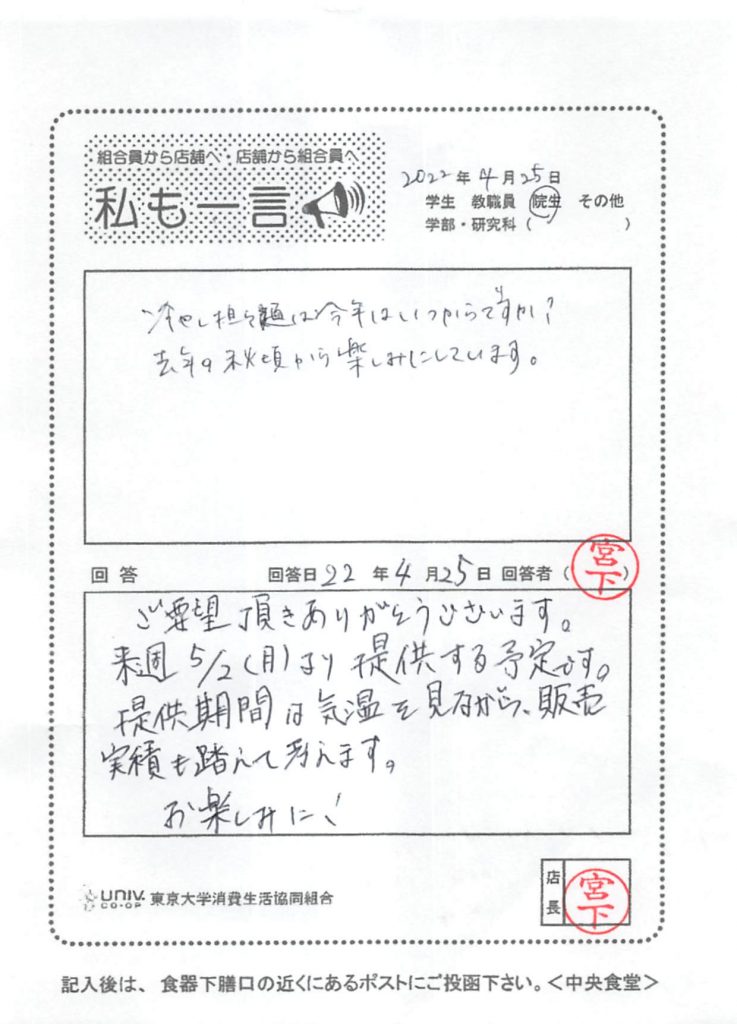 組合員から店舗へ・店舗から組合員へ
私も一言
2022年4月25日
学生 教職員 院生 その他
学部・研究科( )
冷やし担々麺は今年はいつからですか?
去年の秋頃から楽しみにしています。
回答 回答日22年4月25日 回答者(宮下)
ご要望頂きありがとうございます。
来週5/2(月)より提供する予定です。
提供期間は気温を見ながら、販売
実績も踏えて考えます。
お楽しみに!
UNIV. CO-OP 東京大学消費生活協同組合
店長 宮下
記入後は、食器下膳口の近くにあるポストにご投函下さい。<中央食堂>